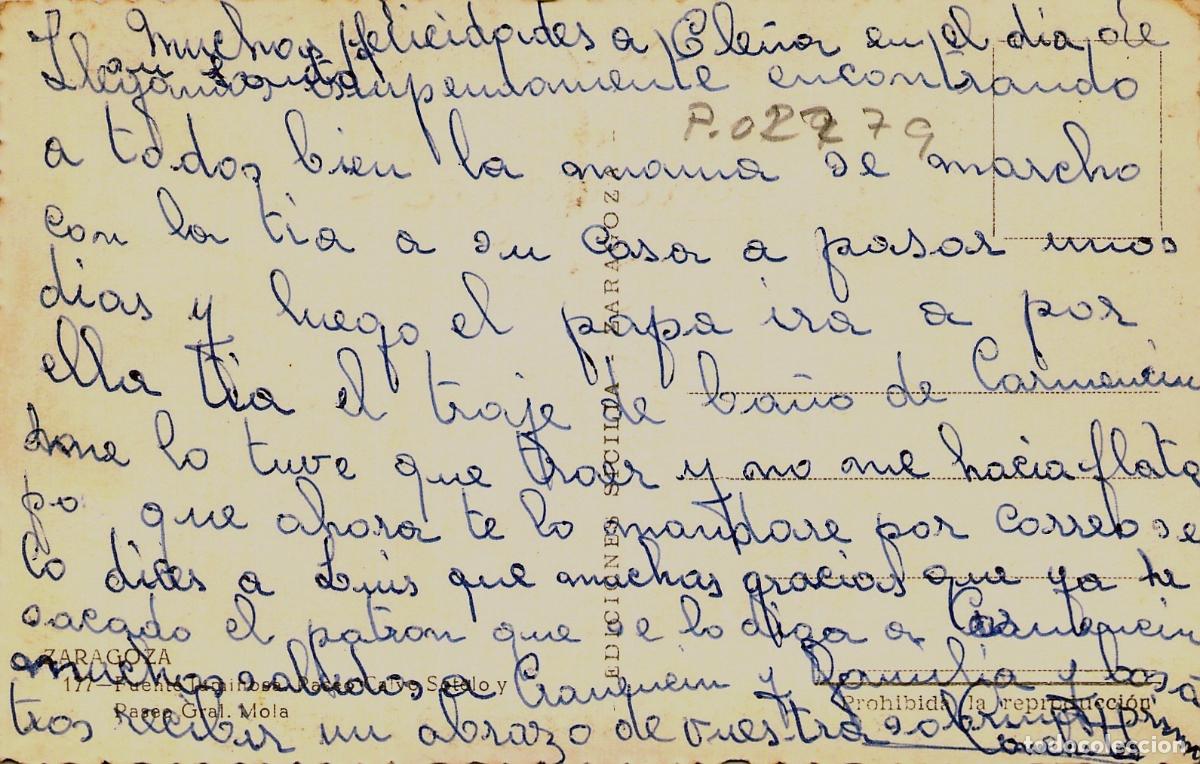 Muchas felicidades a Elena en el dia de
su Santo
Llegamos estupendamente encontrando
a todos bien la mama se marcho
con la tia a su casa a pasar unos
dias y luego el papa ira a por
ella tia el traje de baño de Carmencin
me lo tuve que traer y no me hacia falta
que ahora te lo mandare por correo se
lo dices a Luis que muchas gracias que ya he
sacado el patron que se lo diga a Carmencin
muchos saludos a y familia y
tros recibir un abrazo de vuestra sobrina
P.02279
EDICIONES SICILIA - ZARAGOZA
ZARAGOZA
177—Puente Luminosa. Paseo Calvo Sotelo y
Paseo Gral. Mola
Prohibida la reproducción
todocoleccion